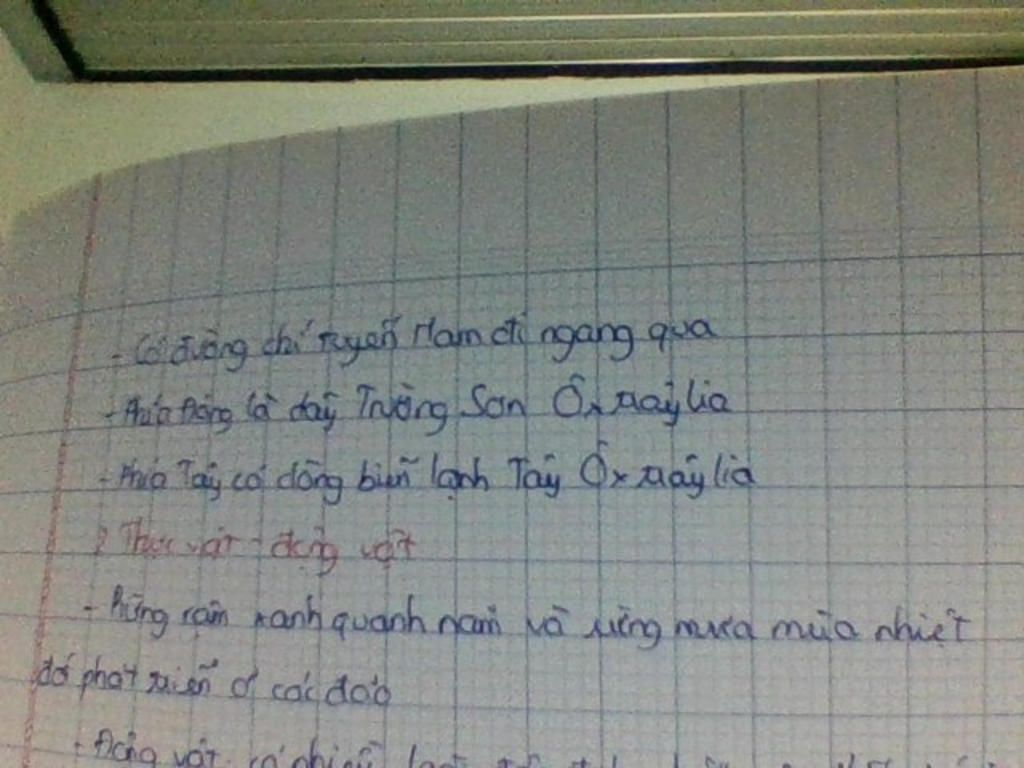 - Có đường chí tuyến Nam đi ngang qua
- Phía Đông là dãy Trường Sơn Ôxtrâylia
- Phía Tây có dòng biển lạnh Tây Ôxtrâylia
2 Thực vật - động vật
- Rừng rậm xanh quanh năm và rừng mưa mùa nhiệt
đới phát triển ở các đảo
- Động vật có nhiều